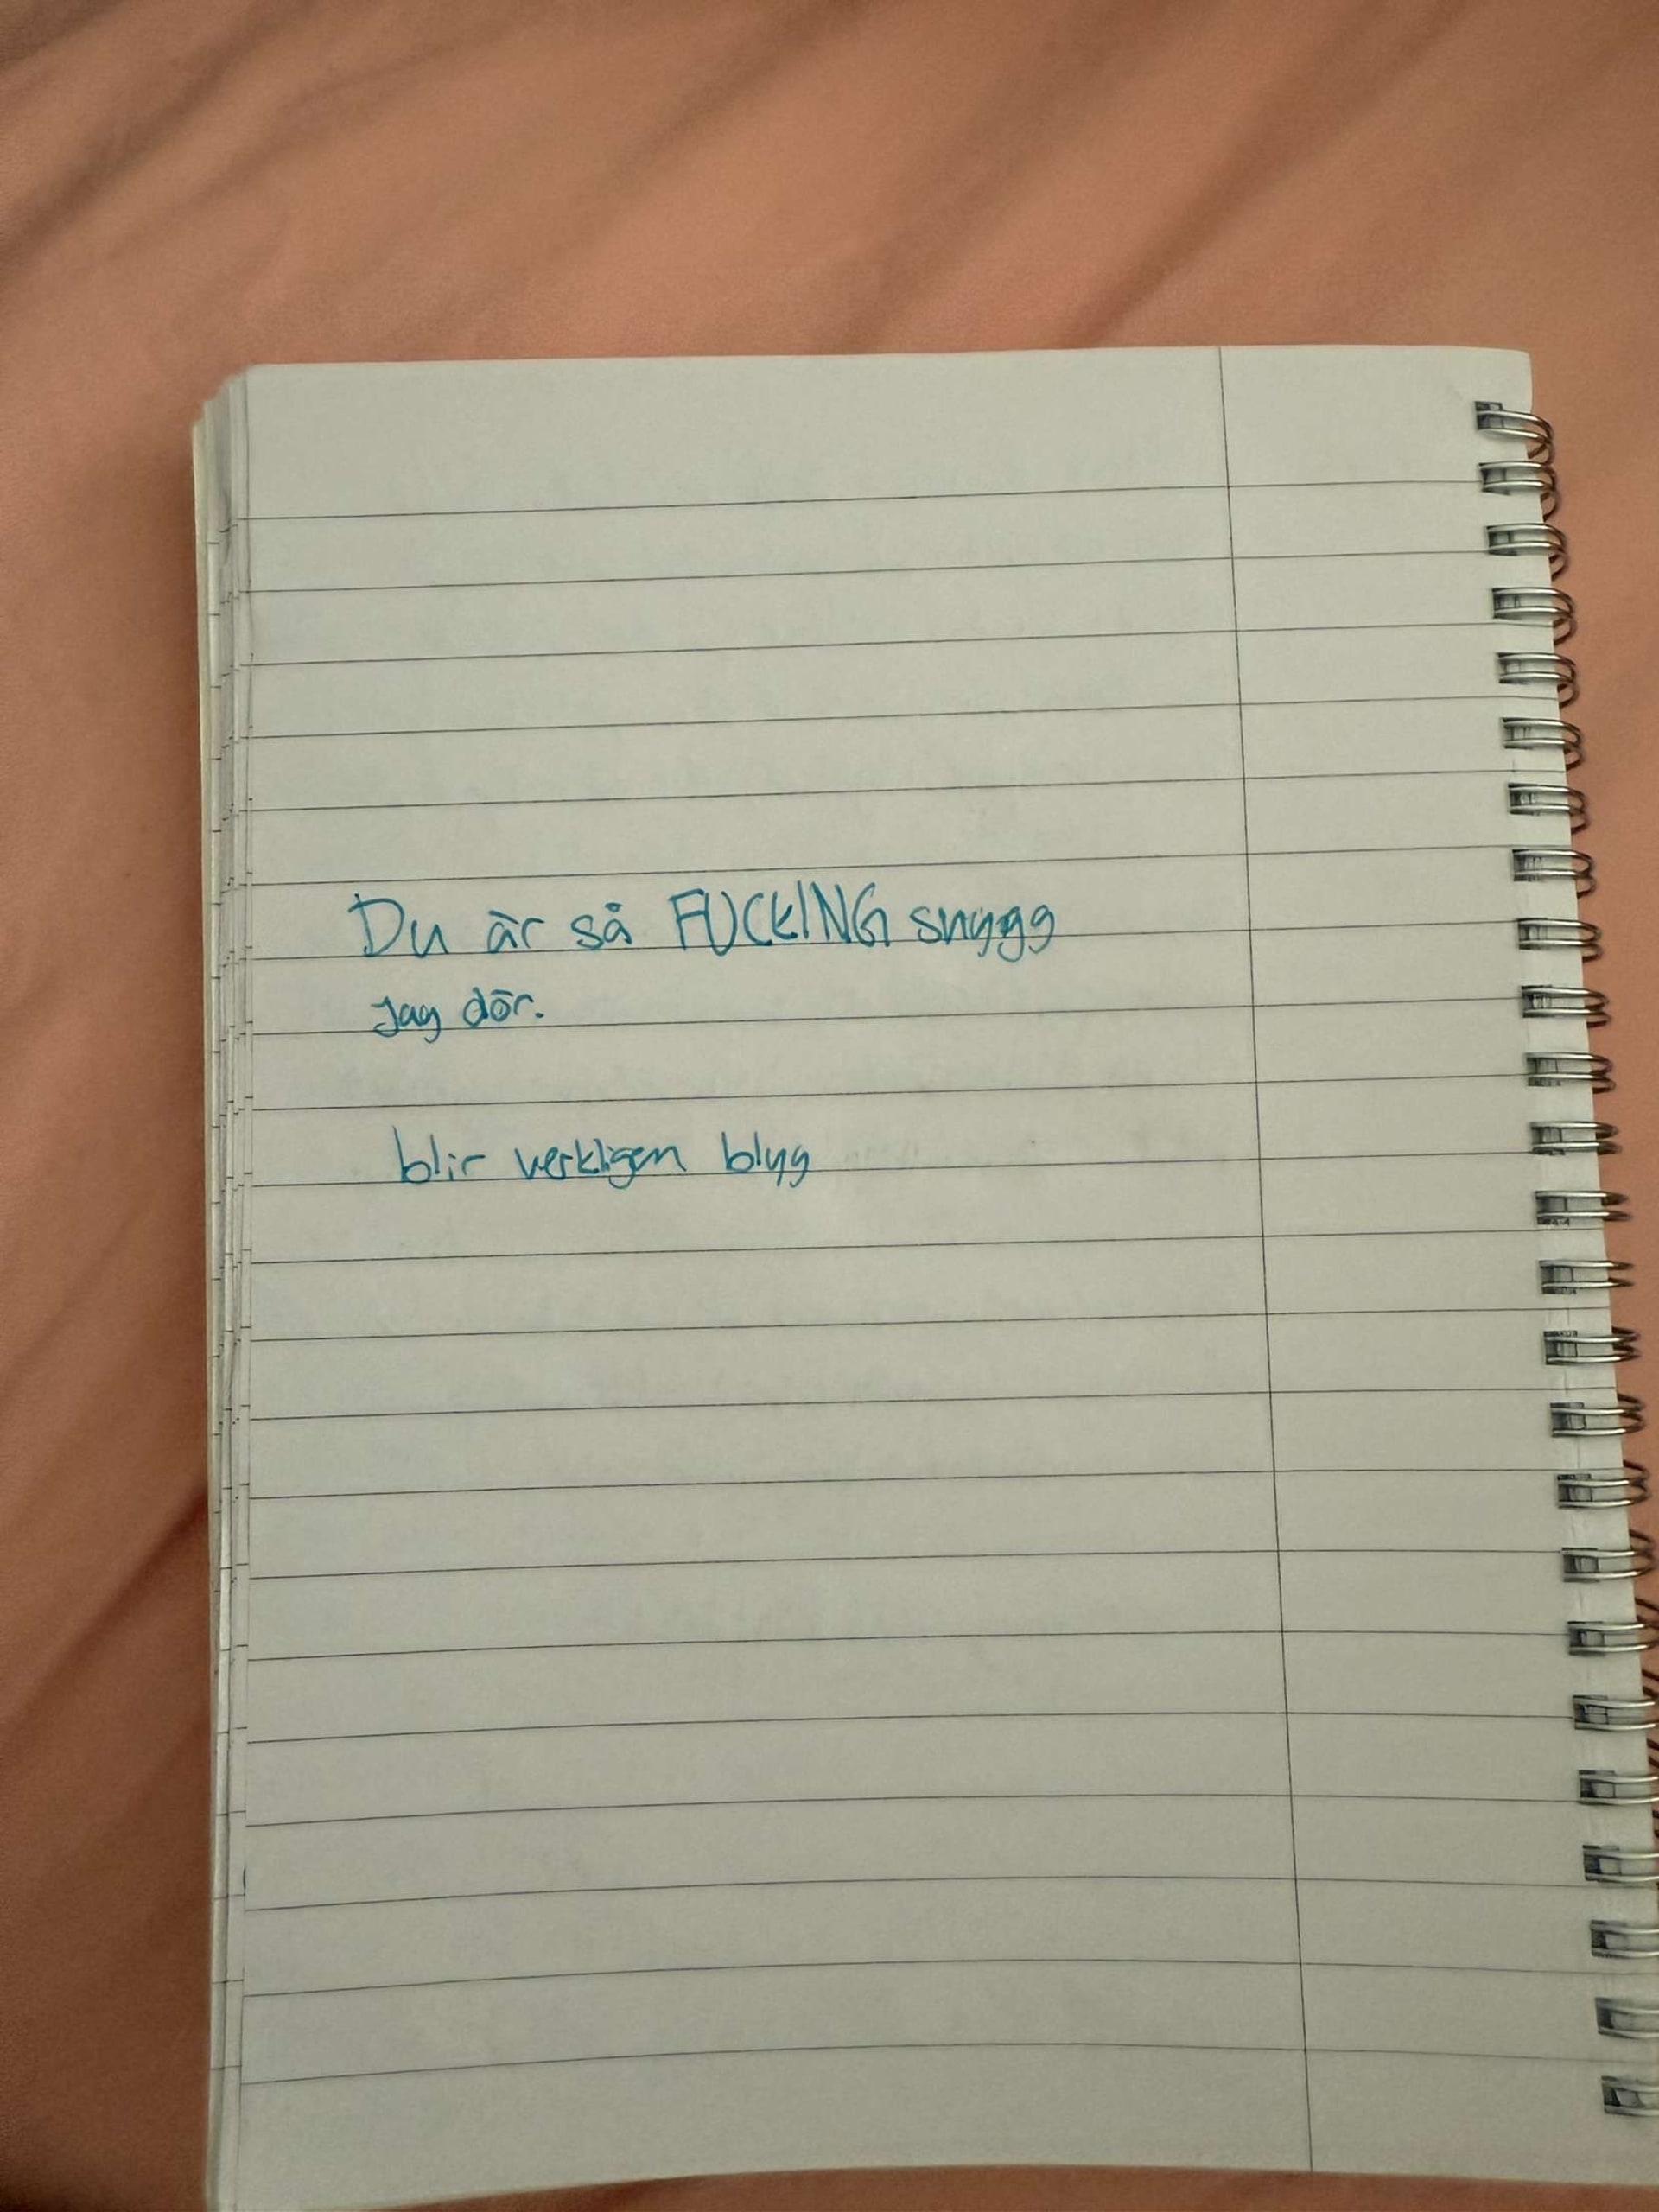 Du är så FUCKING snygg
Jag dör.
blir verkligen blyg